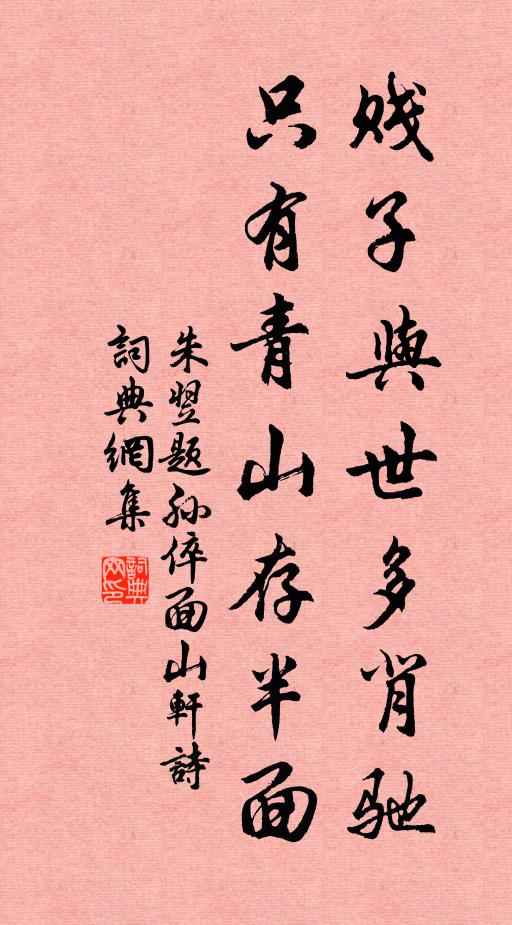 贱子與世多背驰
只有青山存半面
朱翌题孙倅面山軒詩
詞典網集
詞典网印